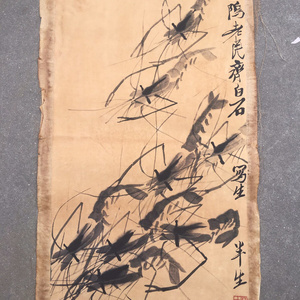 陽老民齊白石
寫生
半生